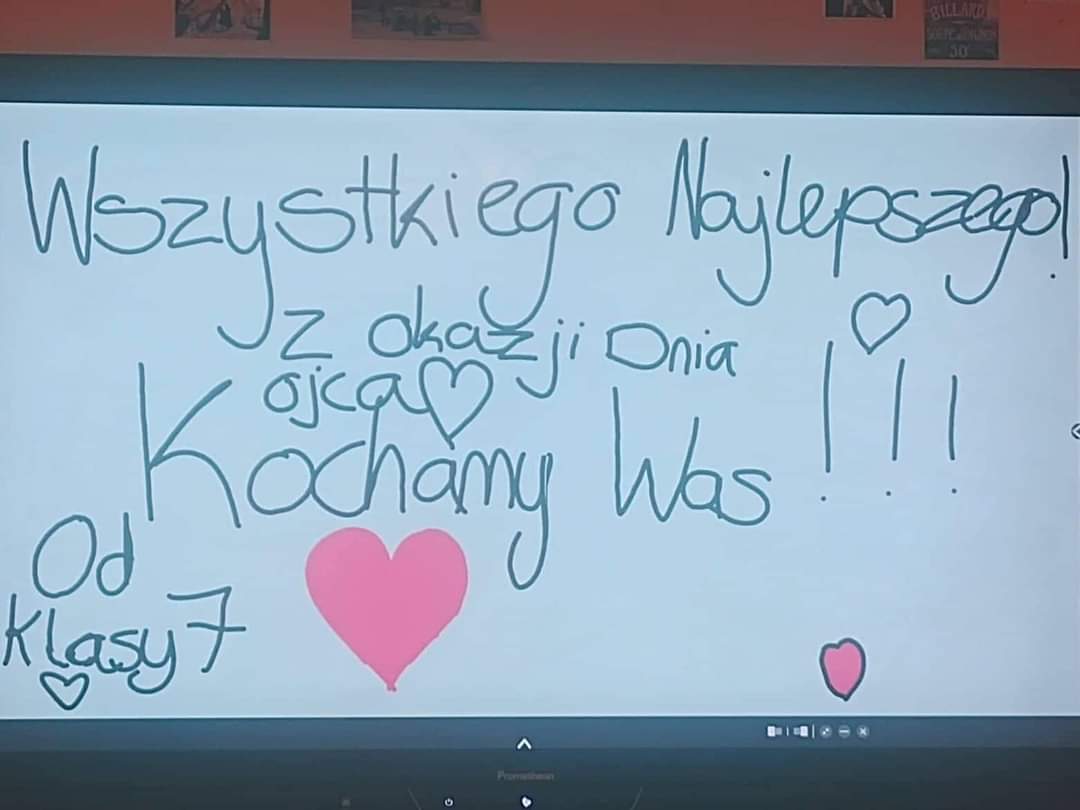 BILLARD
30
Wszystkiego Najlepszego!
z okazji Dnia
ojca
Kochamy Was !!!
Od
klasy 7
Promethean